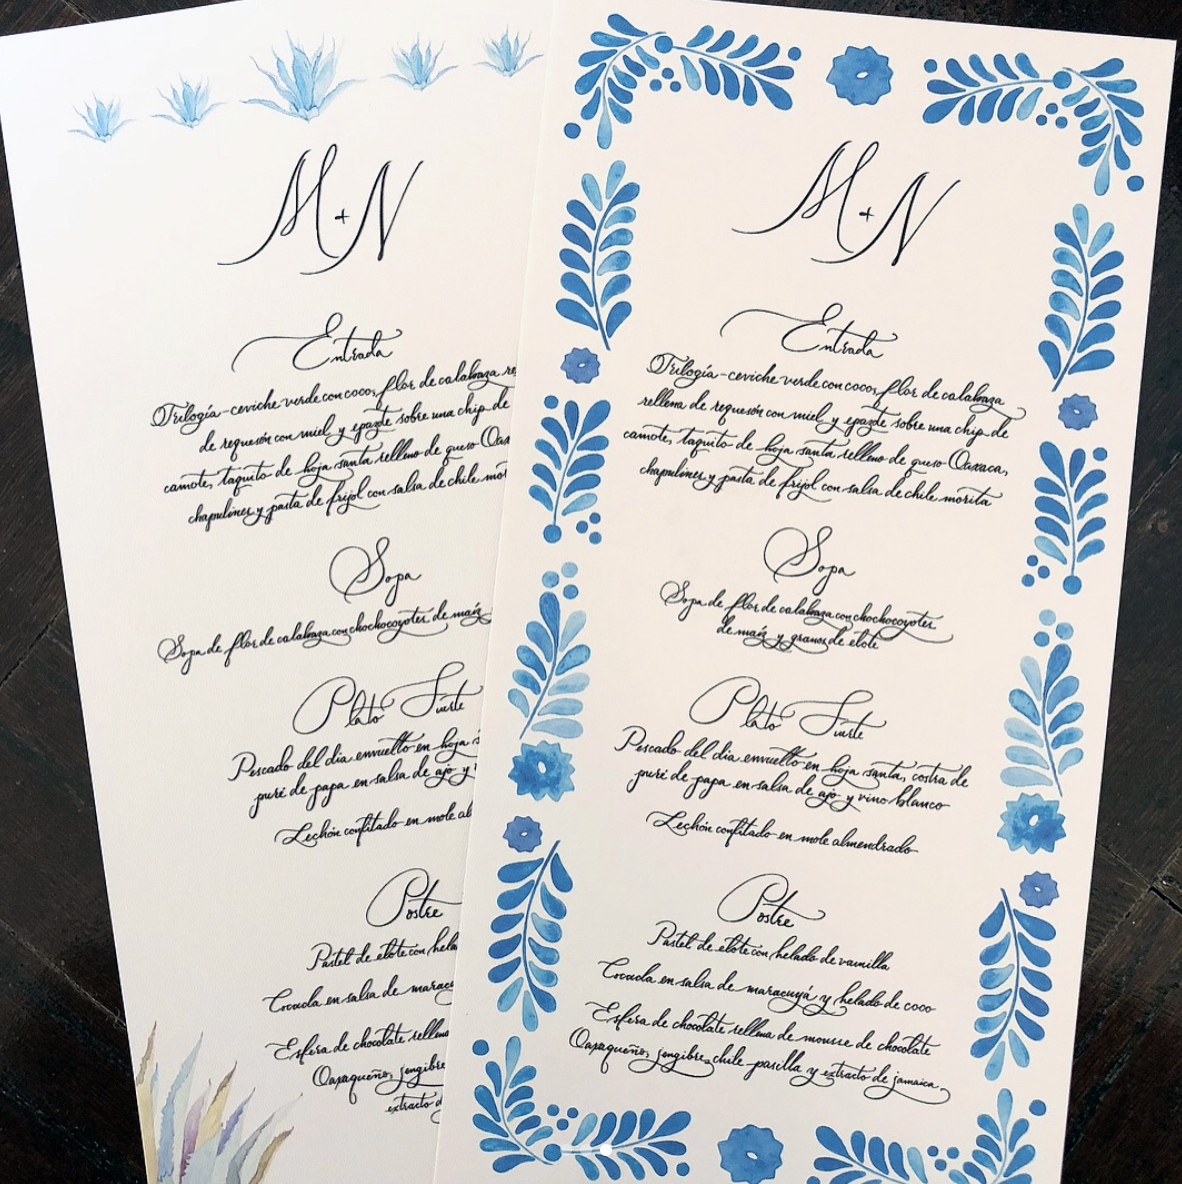 M+N
Entrada
Trilogía-ceviche verde con coco, flor de calabaza re
de requesón con miel y epazote sobre una chip de
camote, taquito de hoja santa relleno de queso Oax
chapulines y pasta de frijol con salsa de chile mor
Sopa
Sopa de flor de calabaza con chochocoyotes de maíz
Plato Fuerte
Pescado del dia envuelto en hoja s
puré de papa en salsa de ajo y
Lechón confitado en mole al
Postre
Pastel de elote con hela
Cocada en salsa de maracu
Esfera de chocolate rellen
Oaxaqueño, jengibre
extracto d
M+N
Entrada
Trilogía-ceviche verde con coco, flor de calabaza
rellena de requesón con miel y epazote sobre una chip de
camote, taquito de hoja santa relleno de queso Oaxaca,
chapulines y pasta de frijol con salsa de chile morita
Sopa
Sopa de flor de calabaza con chochocoyotes
de maíz y granos de elote
Plato Fuerte
Pescado del dia envuelto en hoja santa, costra de
puré de papa en salsa de ajo y vino blanco
Lechón confitado en mole almendrado
Postre
Pastel de elote con helado de vainilla
Cocada en salsa de maracuyá y helado de coco
Esfera de chocolate rellena de mousse de chocolate
Oaxaqueño, jengibre, chile pasilla y extracto de jamaica